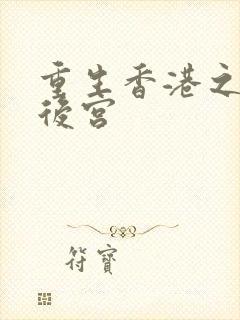 重生香港之
後宮
符寶